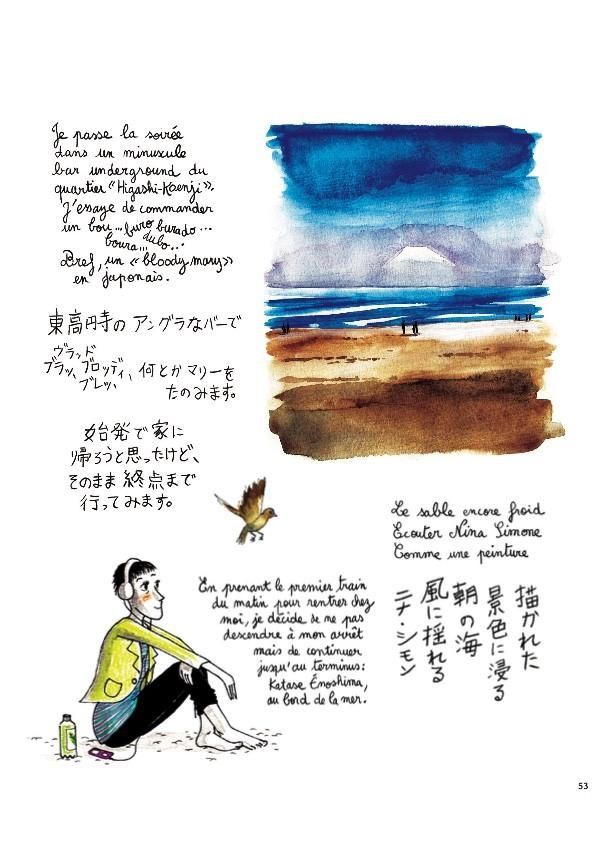 Je passe la soirée
dans un minuscule
bar underground du
quartier "Higashi-Kōenji".
J'essaye de commander
un bou... buro burado...
boura... dubo...
Bref, un «bloody mary»
en japonais.
東高円寺の アングラなバーで
ヴラッド
ブラッ、ブロッディ、何とかマリーを
ブレッ、
たのみます。
始発で家に
帰ろうと思ったけど、
そのまま終点まで
行ってみます。
Le sable encore froid
Ecouter Nina Simone
Comme une peinture
描かれた
景色に浸る
朝の海
風に揺れる
ニナ・シモン
En prenant le premier train
du matin pour rentrer chez
moi, je décide de ne pas
descendre à mon arrêt
mais de continuer
jusqu'au terminus:
Katase Enoshima,
au bord de la mer.
53